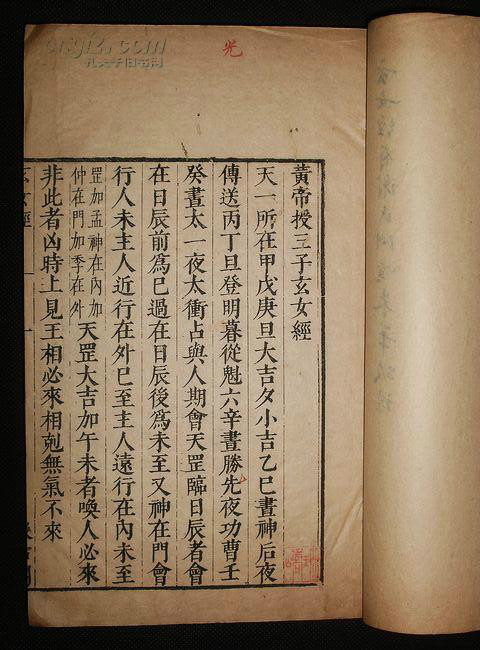 黃帝授三子玄女經
天一所在甲戊庚旦大吉夕小吉乙巳晝神后夜
傳送丙丁旦登明暮從魁六辛晝勝先夜功曹壬
癸晝太一夜太衝占與人期會天罡臨日辰者會
在日辰前爲已過在日辰後爲未至又神在門會
行人未主人近行在外已至主人遠行在內未至
罡加孟神在內加
仲在門加季在外
天罡大吉加午未者喚人必來
非此者凶時上見王相必來相剋無氣不來
玄女經
一
光
孔夫子旧书网